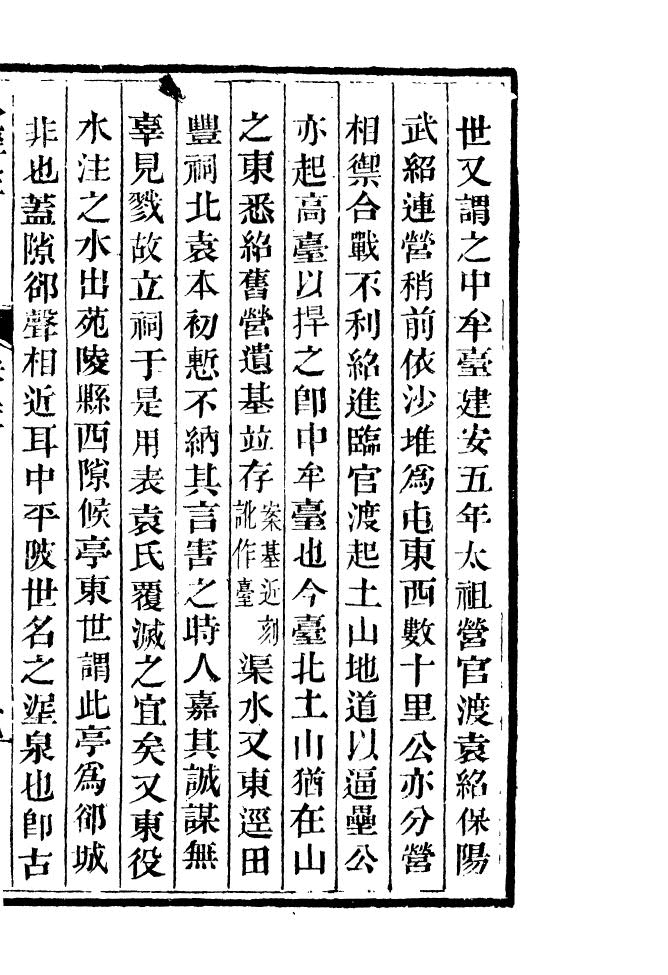 世又謂之中牟臺建安五年太祖營官渡袁紹保陽
武紹連營稍前依沙堆爲屯東西數十里公亦分營
相禦合戰不利紹進臨官渡起土山地道以逼壘公
亦起高臺以捍之卽中牟臺也今臺北土山猶在山
之東悉紹舊營遺基竝存案基近刻訛作臺渠水又東逕田
豐祠北袁本初慙不納其言害之時人嘉其誠謀無
辜見戮故立祠于是用表袁氏覆滅之宜矣又東役
水注之水出苑陵縣西隙候亭東世謂此亭爲郤城
非也蓋隙郤聲相近耳中平陂世名之埿泉也卽古